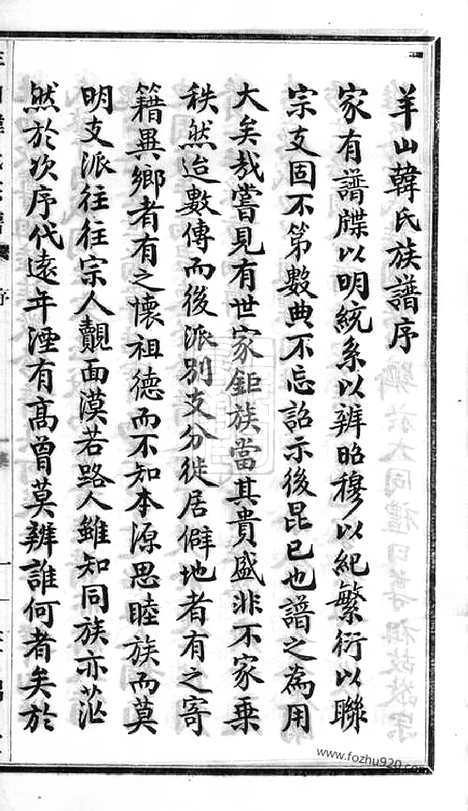 羊山韓氏族譜序
家有譜牒以明統系以辨昭穆以紀繁衍以聯
宗支固不第數典不忘詔示後昆已也譜之為用
大矣哉嘗見有世家鉅族當其貴盛非不家乘
秩然迨數傳而後派別支分徙居僻地者有之寄
籍異鄉者有之懷祖德而不知本源思睦族而莫
明支派往往宗人覿面漠若路人雖知同族亦茫
然於次序代遠年湮有高曾莫辨誰何者矣於
序
www.fozhu920.com